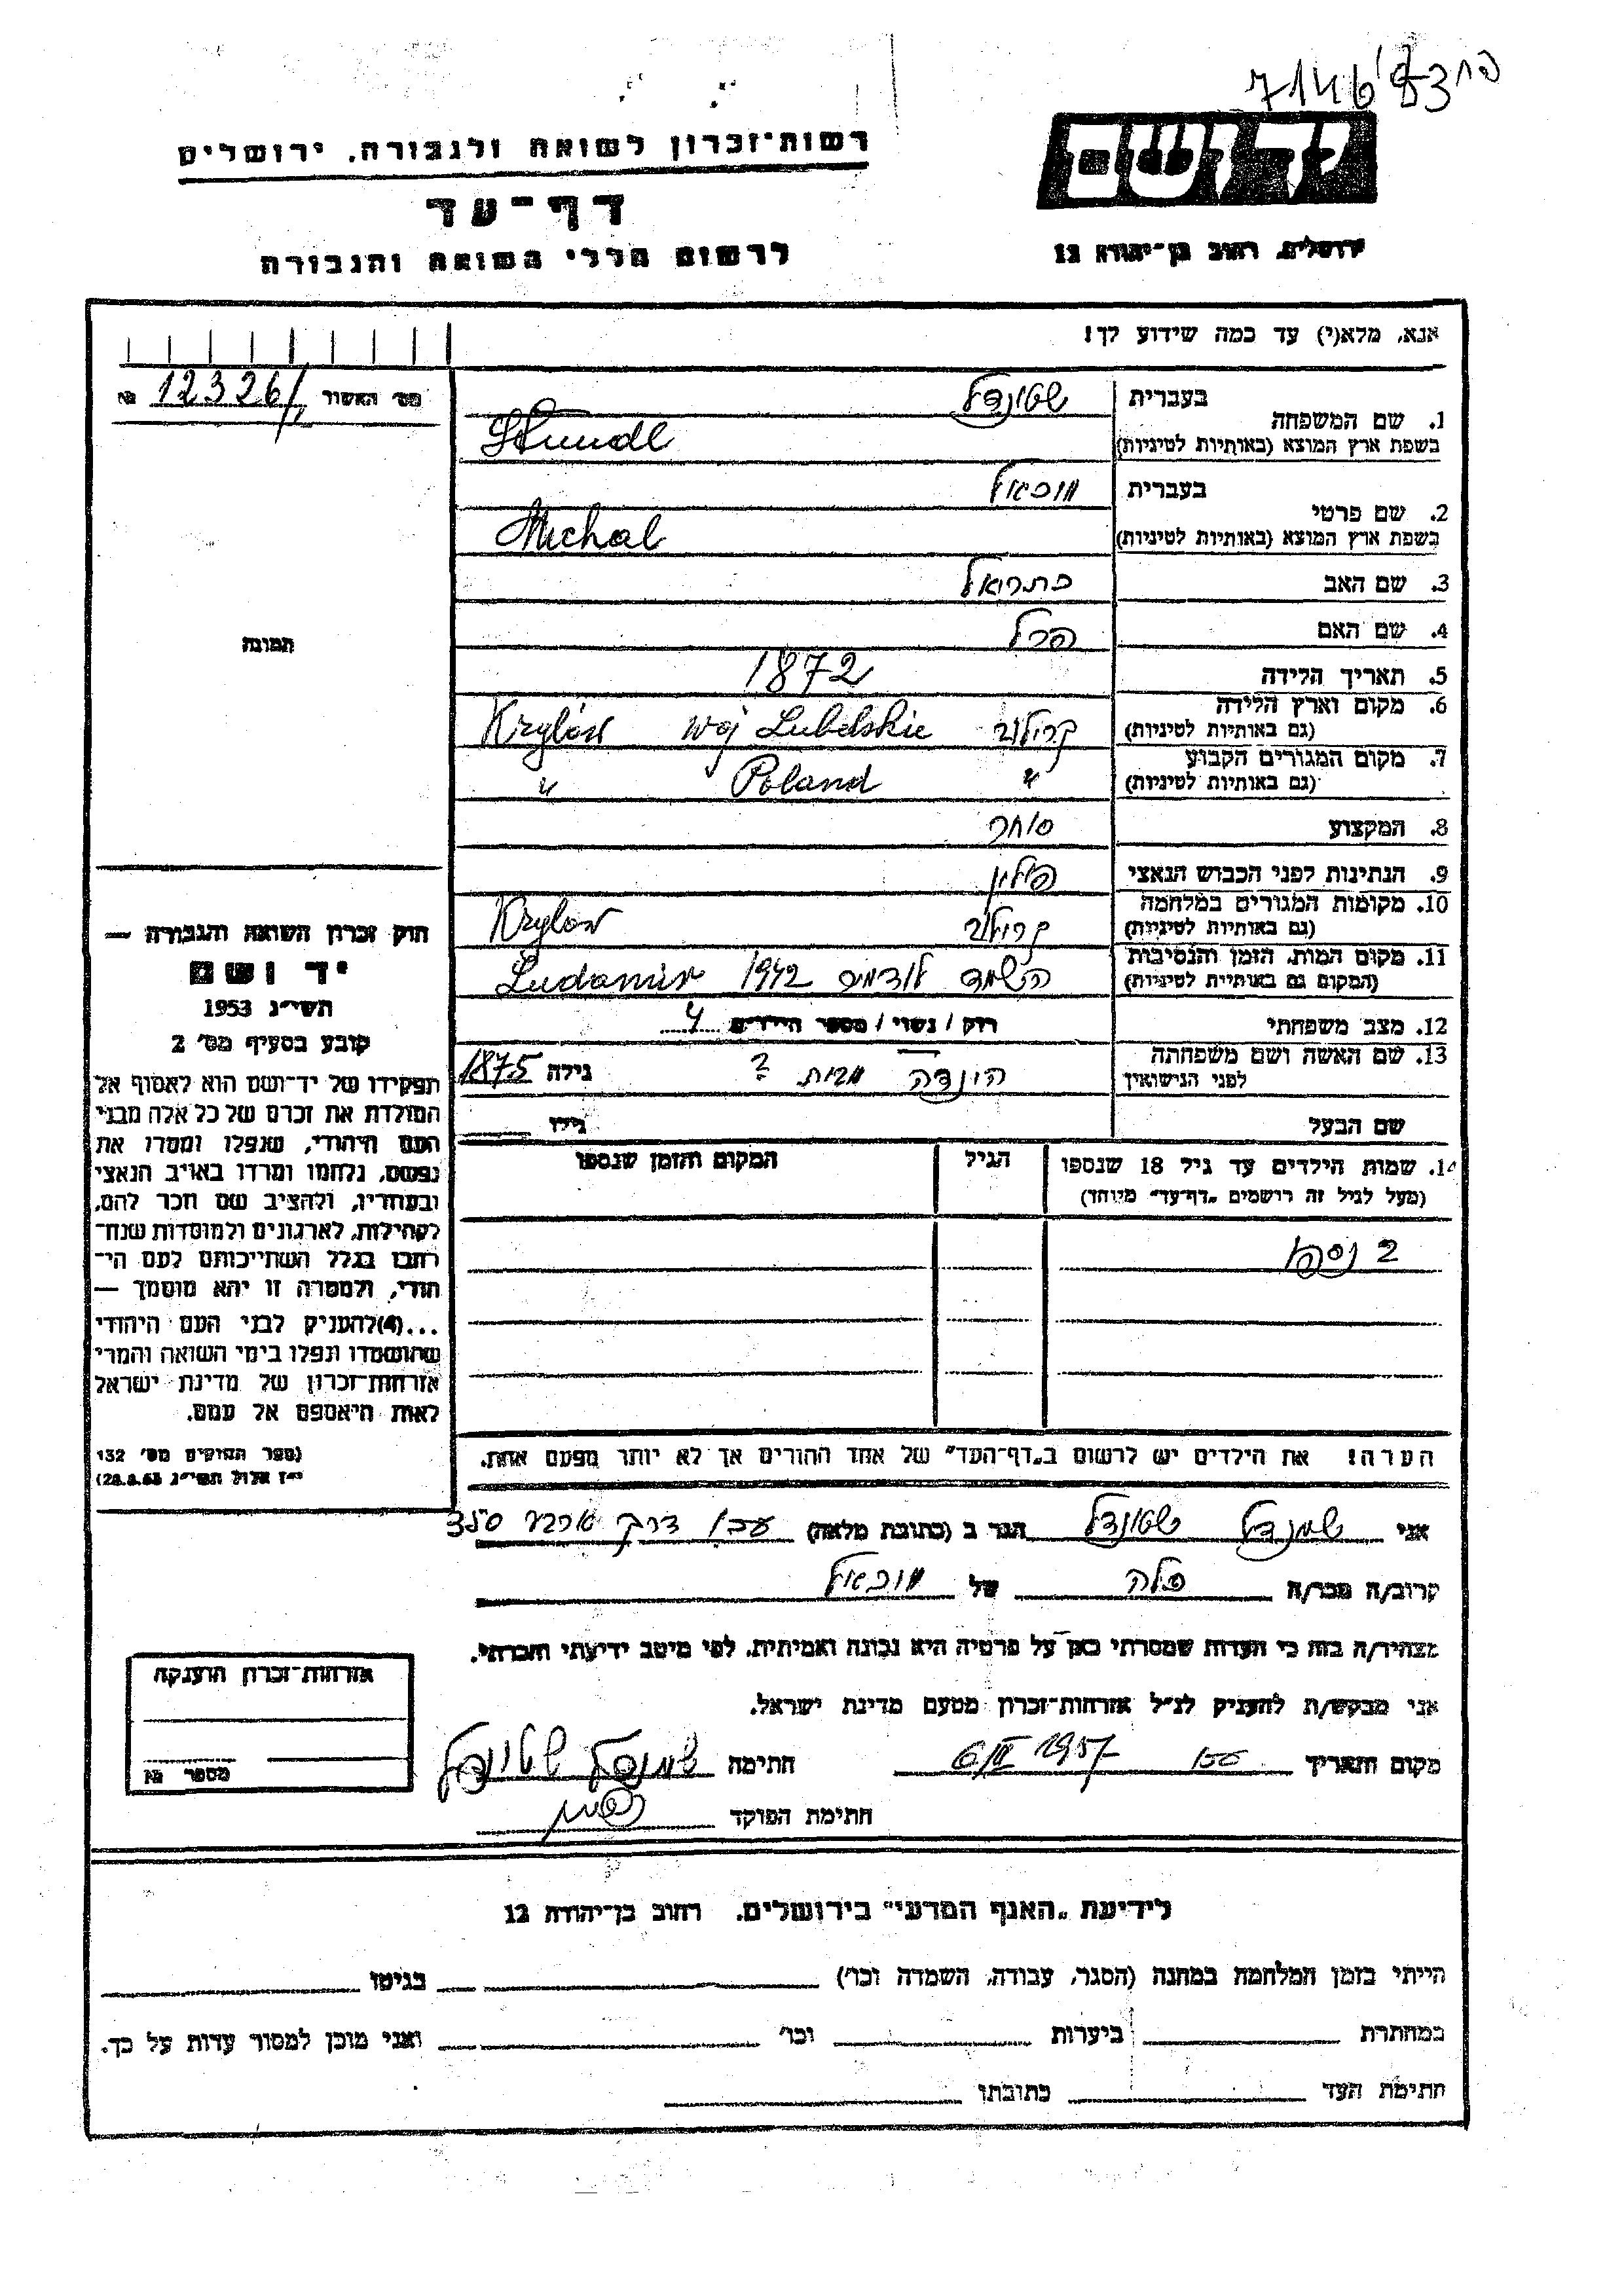 יד ושם
ירושלים, רחוב בן־יהודה 12
רשות־זכרון לשואה ולגבורה, ירושלים
דף־עד
לרשום חללי השואה והגבורה
אנא, מלא(י) עד כמה שידוע לך!
מס׳ האשור № 12326/
תמונה
1. שם המשפחה בעברית שטונדל
בשפת ארץ המוצא (באותיות לטיניות) Sztundl
2. שם פרטי בעברית מיכאל
בשפת ארץ המוצא (באותיות לטיניות) Michal
3. שם האב כתריאל
4. שם האם פרל
5. תאריך הלידה 1872
6. מקום וארץ הלידה (גם באותיות לטיניות) קרילוב Kryłów woj Lubelskie
7. מקום המגורים הקבוע (גם באותיות לטיניות) " Poland "
8. המקצוע סוחר
9. הנתינות לפני הכבוש הנאצי פולין
10. מקומות המגורים במלחמה (גם באותיות לטיניות) קרילוב Krylow
11. מקום המות, הזמן והנסיבות (המקום גם באותיות לטיניות) השמד לודמיר 1942 Ludomir
12. מצב משפחתי רוק / נשוי / מספר הילדים 4
13. שם האשה ושם משפחתה לפני הנישואין הינדה מבית ? גילה 1875
שם הבעל גילו
14. שמות הילדים עד גיל 18 שנספו
(מעל לגיל זה רושמים „דף־עד" מיוחד)
הגיל
המקום והזמן שנספו
2 נספו
הערה! את הילדים יש לרשום ב„דף־העד" של אחד ההורים אך לא יותר מפעם אחת.
חוק זכרון השואה והגבורה —
יד ושם
תשי״ג 1953
קובע בסעיף מס׳ 2
תפקידו של יד־ושם הוא לאסוף אל
המולדת את זכרם של כל אלה מבני
העם היהודי, שנפלו ומסרו את
נפשם, נלחמו ומרדו באויב הנאצי
ובעוזריו, ולהציב שם וזכר להם,
לקהילות, לארגונים ולמוסדות שנח־
רבו בגלל השתייכותם לעם הי־
הודי, ולמטרה זו יהא מוסמך —
...(4) להעניק לבני העם היהודי
שהושמדו ונפלו בימי השואה והמרי
אזרחות־זכרון של מדינת ישראל
לאות היאספם אל עמם.
(ספר החוקים מס׳ 132
י״ז אלול תשי״ג 28.8.53)
אני שמנדל שטונדל הגר ב (כתובת מלאה) עכו דרך
קרוב/ה מכר/ה כלה של מיכאל
מצהיר/ה בזה כי העדות שמסרתי כאן על פרטיה היא נכונה ואמיתית, לפי מיטב ידיעתי והכרתי.
אני מבקש/ת להעניק לנ״ל אזרחות־זכרון מטעם מדינת ישראל.
מקום ותאריך עכו 6/III 1957 חתימה שמנדל שטונדל
חתימת הפוקד
אזרחות־זכרון הוענקה
מספר №
לידיעת „האגף המדעי" בירושלים, רחוב בן־יהודה 12
הייתי בזמן המלחמה במחנה (הסגר, עבודה, השמדה וכו׳) בגיטו
במחתרת ביערות וכו׳ ואני מוכן למסור עדות על כך.
חתימת העד כתובתו